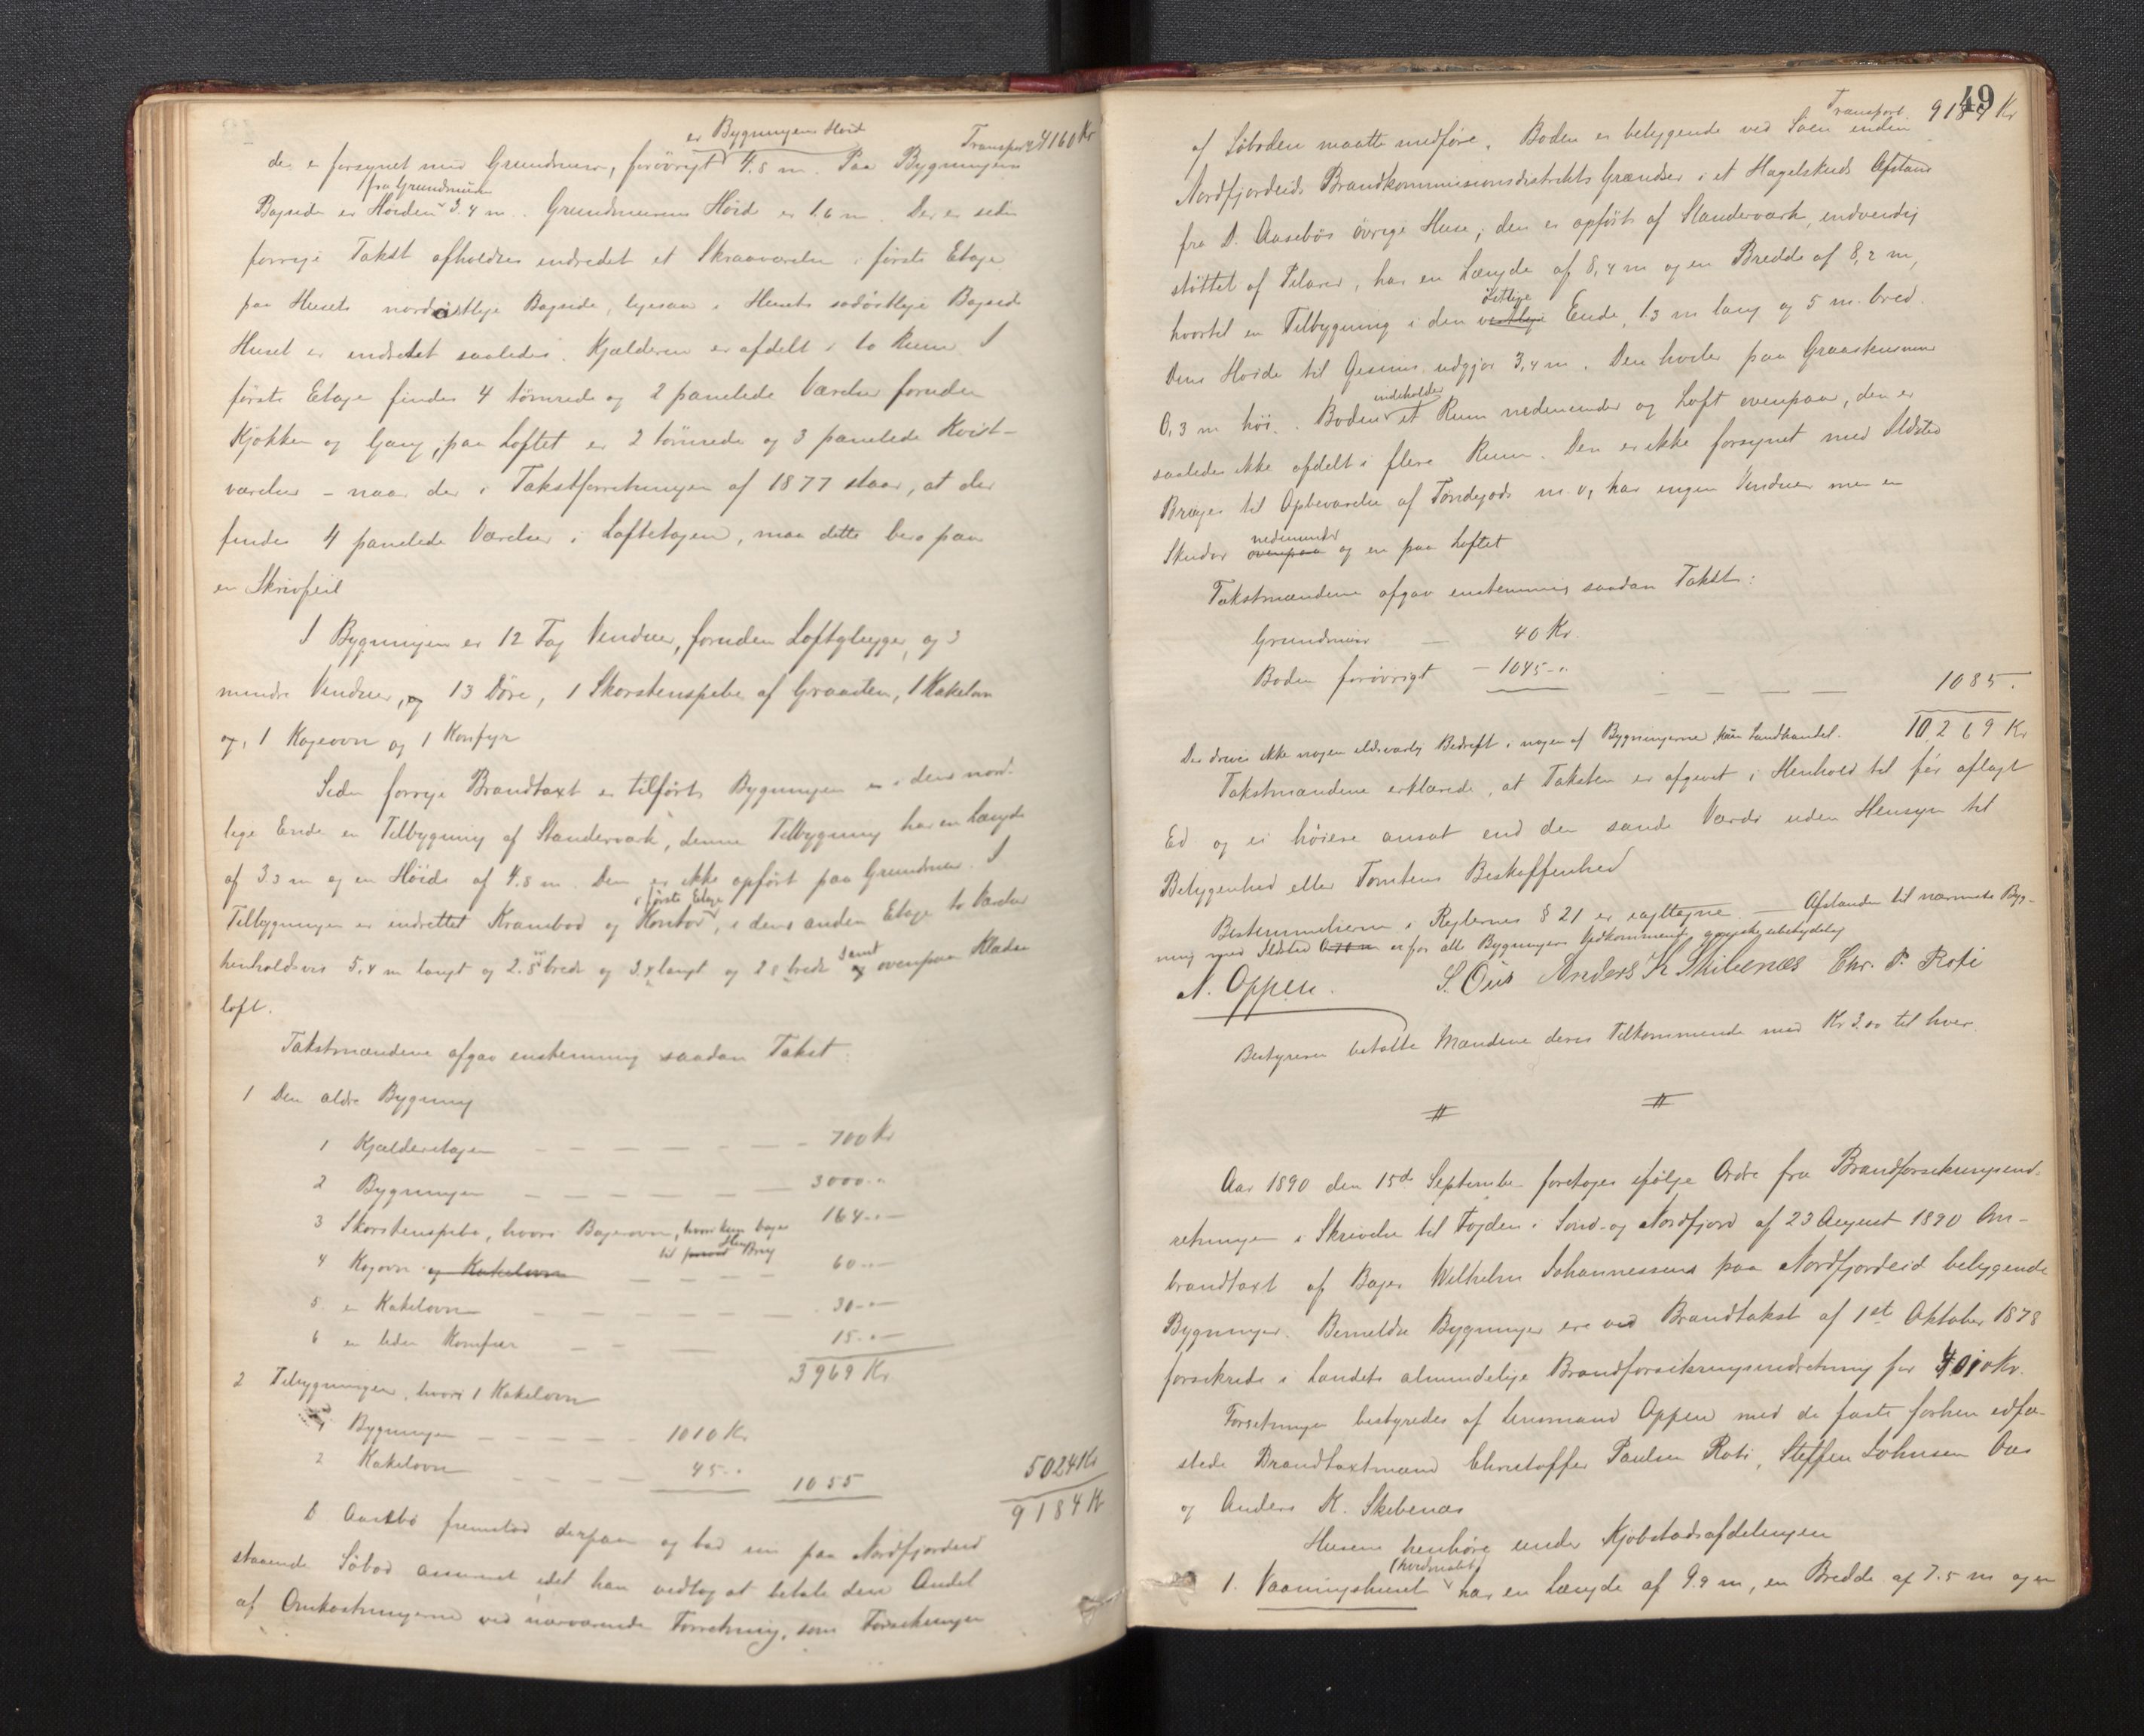 Transport 4160 Kr
er Bygningens Høide
der er forsynet med Grundmur, forøvrigt 4.8 m. Paa Bygningens
fra Grundmuren
Bagside er Høiden 3.4 m. Grundmurens Høide er 1.6 m. Der er siden
forrige Takst afholdtes indredet et Skraaværelse i første Etage
paa Husets nordøstlige Bagside, ligesaa i Husets sødøstlige Bagside
Huset er indredet saaledes. Kjælderen er afdelt i to Rum. I
første Etage findes 4 tømrede og 2 panelede Værelser foruden
Kjøkken og Gang, paa Loftet er 2 tømrede og 3 panelede Kvist-
værelser – naar der i Takstforretningen af 1877 staar, at der
findes 4 panelede Værelser i Loftetagen, maa dette bero paa
en Skrivfeil
I Bygningen er 12 Fag Vinduer, foruden Loftglugger, og 3
mindre Vinduer, og 13 Døre, 1 Skorstenspibe af Graasten, 1 Kakelovn
og, 1 Kogeovn og 1 Komfyr
Siden forrige Brandtaxt er tilført Bygningen i dens nord-
lige Ende en Tilbygning af Standerværk, denne Tilbygning har en Længde
af 3.3 m og en Høide af 4.8 m. Den er ikke opført paa Grundmur. I
i første Etage
Tilbygningen er indrettet Krambod og Kontor, i dens anden Etage to Værelser
henholdsvis 5,4 m langt og 2.8 m bredt og 3.8 langt og 2 8 bredt samt og ovenpaa Klæde
loft.
Takstmændene afgav enstemmig saadan Takst:
1 Den ældre Bygning
1 Kjælderetagen — 700 Kr
2 Bygningen — 3000 "
3 Skorstenspibe, hvori Bagerovn, hvori kun bages 164 "
til Husbrug
4 Kogovn og Kakelovn — 60 "
5 en Kakelovn — 30 "
6 en liden Komfur — 15 "
3969 Kr.
2 Tilbygningen, hvori 1 Kakelovn
1 Bygningen — 1010 Kr.
2 Kakelovn — 45 " 1055 5024 Kr
9184 Kr
D Aasebø fremstod derpaa og bad sin paa Nordfjordeid
staaende Søbod assureret idet han vedtog at betale den Andel
af Omkostningerne ved nærværende Forretning, som Forsikringen
49
Transport. 9184 Kr
af Søboden maatte medføre. Boden er beliggende ved Søen inden
Nordfjordeids Brandkommissionsdistrikts Grændser i et Hagelskuds Afstand
fra D. Aasebøs øvrige Huse, den er opført af Standerværk, indvendig
støttet af Pilarer, har en Længde af 8,4 m og en Bredde af 8,2 m,
østlige
hvortil en Tilbygning i den vestlige Ende, 1.3 m lang og 5 m. bred.
Dens Høide til Gesims udgjør 3,4 m. Den hviler paa Graastensmur
indeholder
0,3 m høi. Boden et Rum nedenunder og Loft ovenpaa, den er
saaledes ikke afdelt i flere Rum. Den er ikke forsynet med Ildsted
Bruges til Opbevarelse af Tøndegods m. v, har ingen Vinduer men en
nedenunder
Skudør ovenpaa og en paa Loftet
Takstmændene afgav enstemmig saadan Takst:
Grundmur — 40 Kr.
Boden forøvrigt — 1045 — " — — — — 1085.
10,269 Kr
Der drives ikke nogen ildsvarlig Bedrift i nogen af Bygningerne, kun Landhandel.
Takstmændene erklærede, at Taksten er afgivet i Henhold til før aflagt
Ed og ei høiere ansat end den sande Værdi uden Hensyn til
Beliggenhed eller Tomtens Beskaffenhed
Bestemmelserne i Reglernes § 21 er iagttagne — Afstanden til nærmeste Byg-
ning med Ildsted er for alle Bygningers Vedkommende ganske ubetydelig
N. Oppen. S. Øus Anders K Skibenæs Chr. P. Roti
Bestyreren betalte Mændene deres Tilkommende med Kr 3.00 til hver.
Aar 1890 den 15de September foretoges ifølge Ordre fra Brandforsikringsind-
retningen i Skrivelse til Fogden i Sønd- og Nordfjord af 23 August 1890 Om-
brandtaxt af Bager Wilhelm Johannessens paa Nordfjordeid beliggende
Bygninger. Bemeldte Bygninger ere ved Brandtakst af 1ste Oktober 1878
forsikrede i Landets almindelige Brandforsikringsindretning for 4010 Kr.
Forretningen bestyredes af Lensmand Oppen med de faste forhen edfæ-
stede Brandtaxtmænd Christoffer Paulsen Roti, Steffen Johnsen Øus
og Anders K. Skibenæs
Husene henhøre under Kjøbstadsafdelingen
(hvidmalet)
1. Vaaningshuset har en Længde af 9.9 m, en Bredde af 7.5 m og en